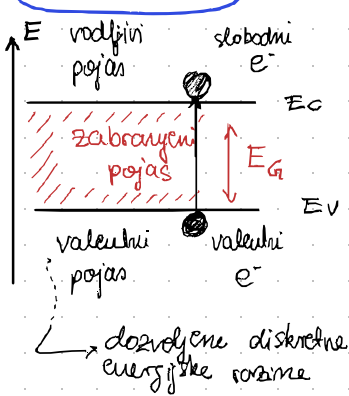 E
vodljivi
pojas
slobodni
e⁻
Ec
zabranjeni
pojas
EG
Ev
valentni
pojas
valentni
e⁻
dozvoljene diskretne
energijske razine